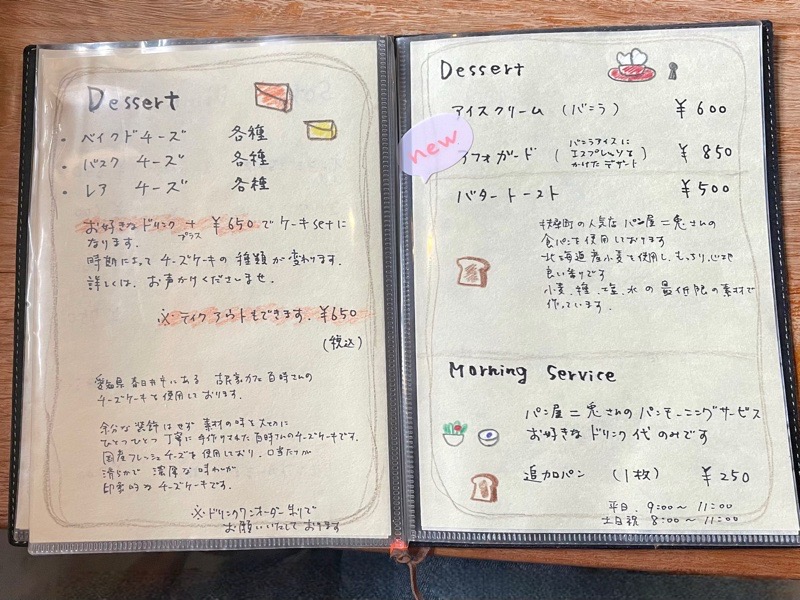 Dessert
・ベイクドチーズ 各種
・バスク チーズ 各種
・レア チーズ 各種
お好きなドリンク + ¥650でケーキsetに
プラス
なります.
時期によって チーズケーキの 種類が変わります.
詳しくは、お声がけくださいませ.
※テイクアウトもできます. ¥650
(税込)
愛知県春日井市にある 古民家カフェ百時さんの
チーズケーキを使用しております.
余分な装飾はせず 素材の味を大切に
ひとつひとつ 丁寧に手作りされた百時さんのチーズケーキです.
国産フレッシュチーズを使用しており、口当たりが
滑らかで 濃厚な味わいが
チーズケーキです.
※ドリンクワンオーダー制で
お願いいたしております
Dessert
アイスクリーム (バニラ) ¥600
new
フォガード (バニラアイスに エスプレッソを かけたデザート) ¥850
バタートースト ¥500
人気店 パン屋二兎さんの
食パンを使用しております
北海道産小麦を使用し、もっちり
良い香りです
小麦、種、塩、水の最低限の素材で
作っています.
Morning Service
パン屋二兎さんのパンモーニングサービス
お好きなドリンク代のみです
追加パン (1枚) ¥250
平日. 9:00〜11:00
土日祝 8:00〜11:00